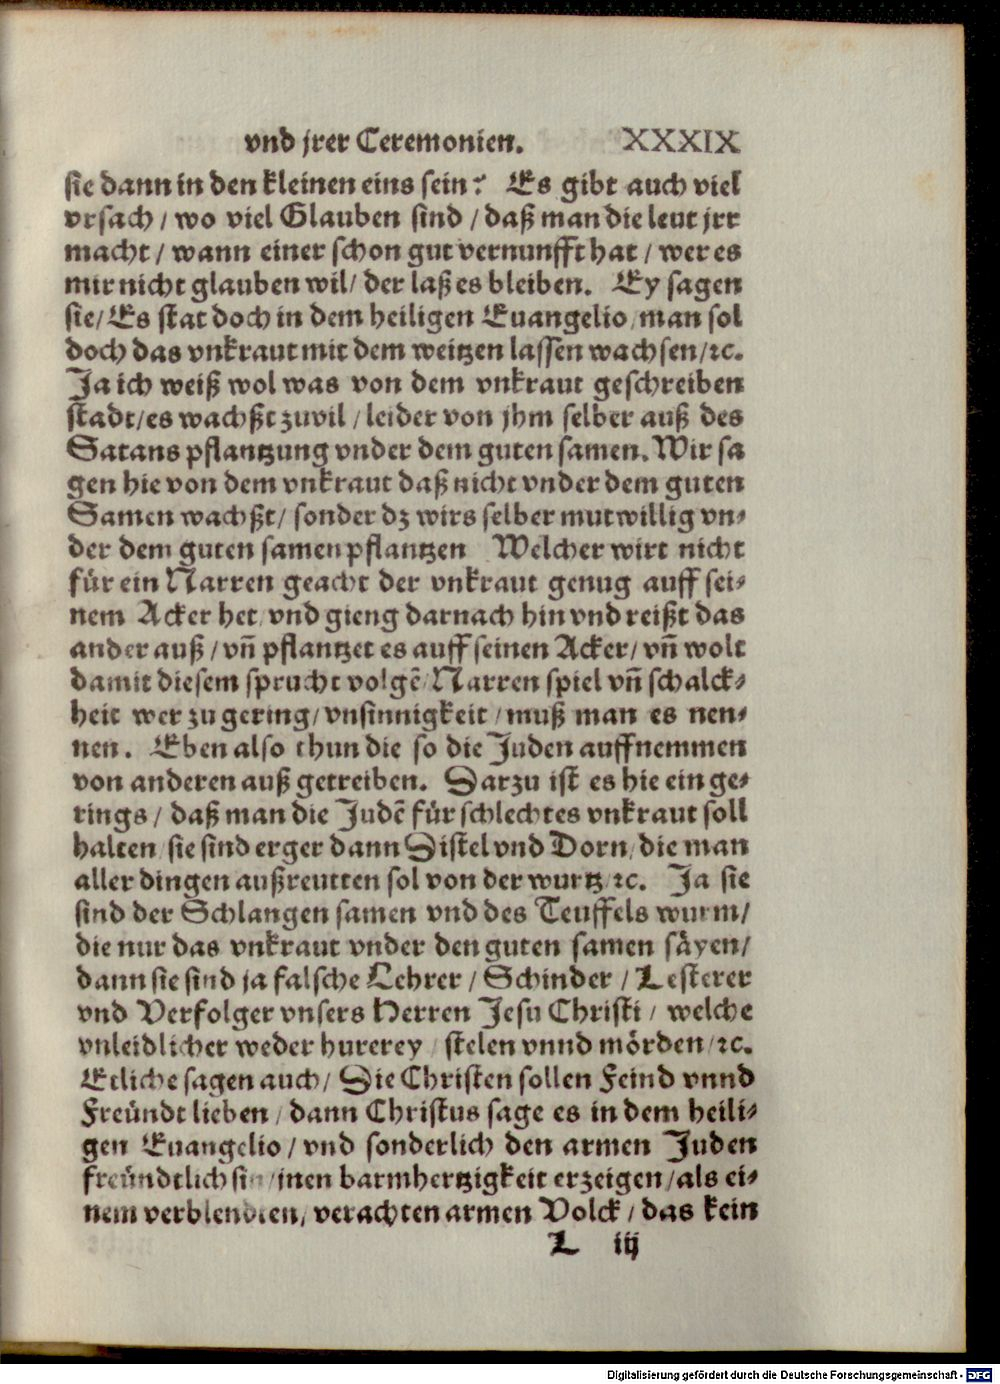 vnd jrer Ceremonien. XXXIX
sie dann in den kleinen eins sein? Es gibt auch viel
vrsach / wo viel Glauben sind / daß man die leut jrr
macht / wann einer schon gut vernunfft hat / wer es
mir nicht glauben wil / der laß es bleiben. Ey sagen
sie / Es stat doch in dem heiligen Euangelio / man sol
doch das vnkraut mit dem weitzen lassen wachsen / ꝛc.
Ja ich weiß wol was von dem vnkraut geschreiben
stadt / es wachßt zuvil / leider von jhm selber auß des
Satans pflantzung vnder dem guten samen. Wir sa
gen hie von dem vnkraut daß nicht vnder dem guten
Samen wachßt / sonder dz wirs selber mutwillig vn⸗
der dem guten samen pflantzen Welcher wirt nicht
für ein Narren geacht der vnkraut genug auff sei⸗
nem Acker het / vnd gieng darnach hin vnd reißt das
ander auß / vñ pflantzet es auff seinen Acker / vñ wolt
damit diesem sprucht volgẽ / Narren spiel vñ schalck⸗
heit wer zu gering / vnsinnigkeit / muß man es nen⸗
nen. Eben also thun die so die Juden auffnemmen
von anderen auß getreiben. Darzu ist es hie ein ge⸗
rings / daß man die Judẽ für schlechtes vnkraut soll
halten / sie sind erger dann Distel vnd Dorn / die man
aller dingen außreutten sol von der wurtz / ꝛc. Ja sie
sind der Schlangen samen vnd des Teuffels wurm /
die nur das vnkraut vnder den guten samen säyen /
dann sie sind ja falsche Lehrer / Schinder / Lesterer
vnd Verfolger vnsers Herren Jesu Christi / welche
vnleidlicher weder hurerey / stelen vnnd mörden / ꝛc.
Etliche sagen auch / Die Christen sollen Feind vnnd
Freündt lieben / dann Christus sage es in dem heili⸗
gen Euangelio / vnd sonderlich den armen Juden
freündtlich sin / jnen barmhertzigkeit erzeigen / als ei⸗
nem verblendten / verachten armen Volck / das kein
L iij
Digitalisierung gefördert durch die Deutsche Forschungsgemeinschaft - DFG